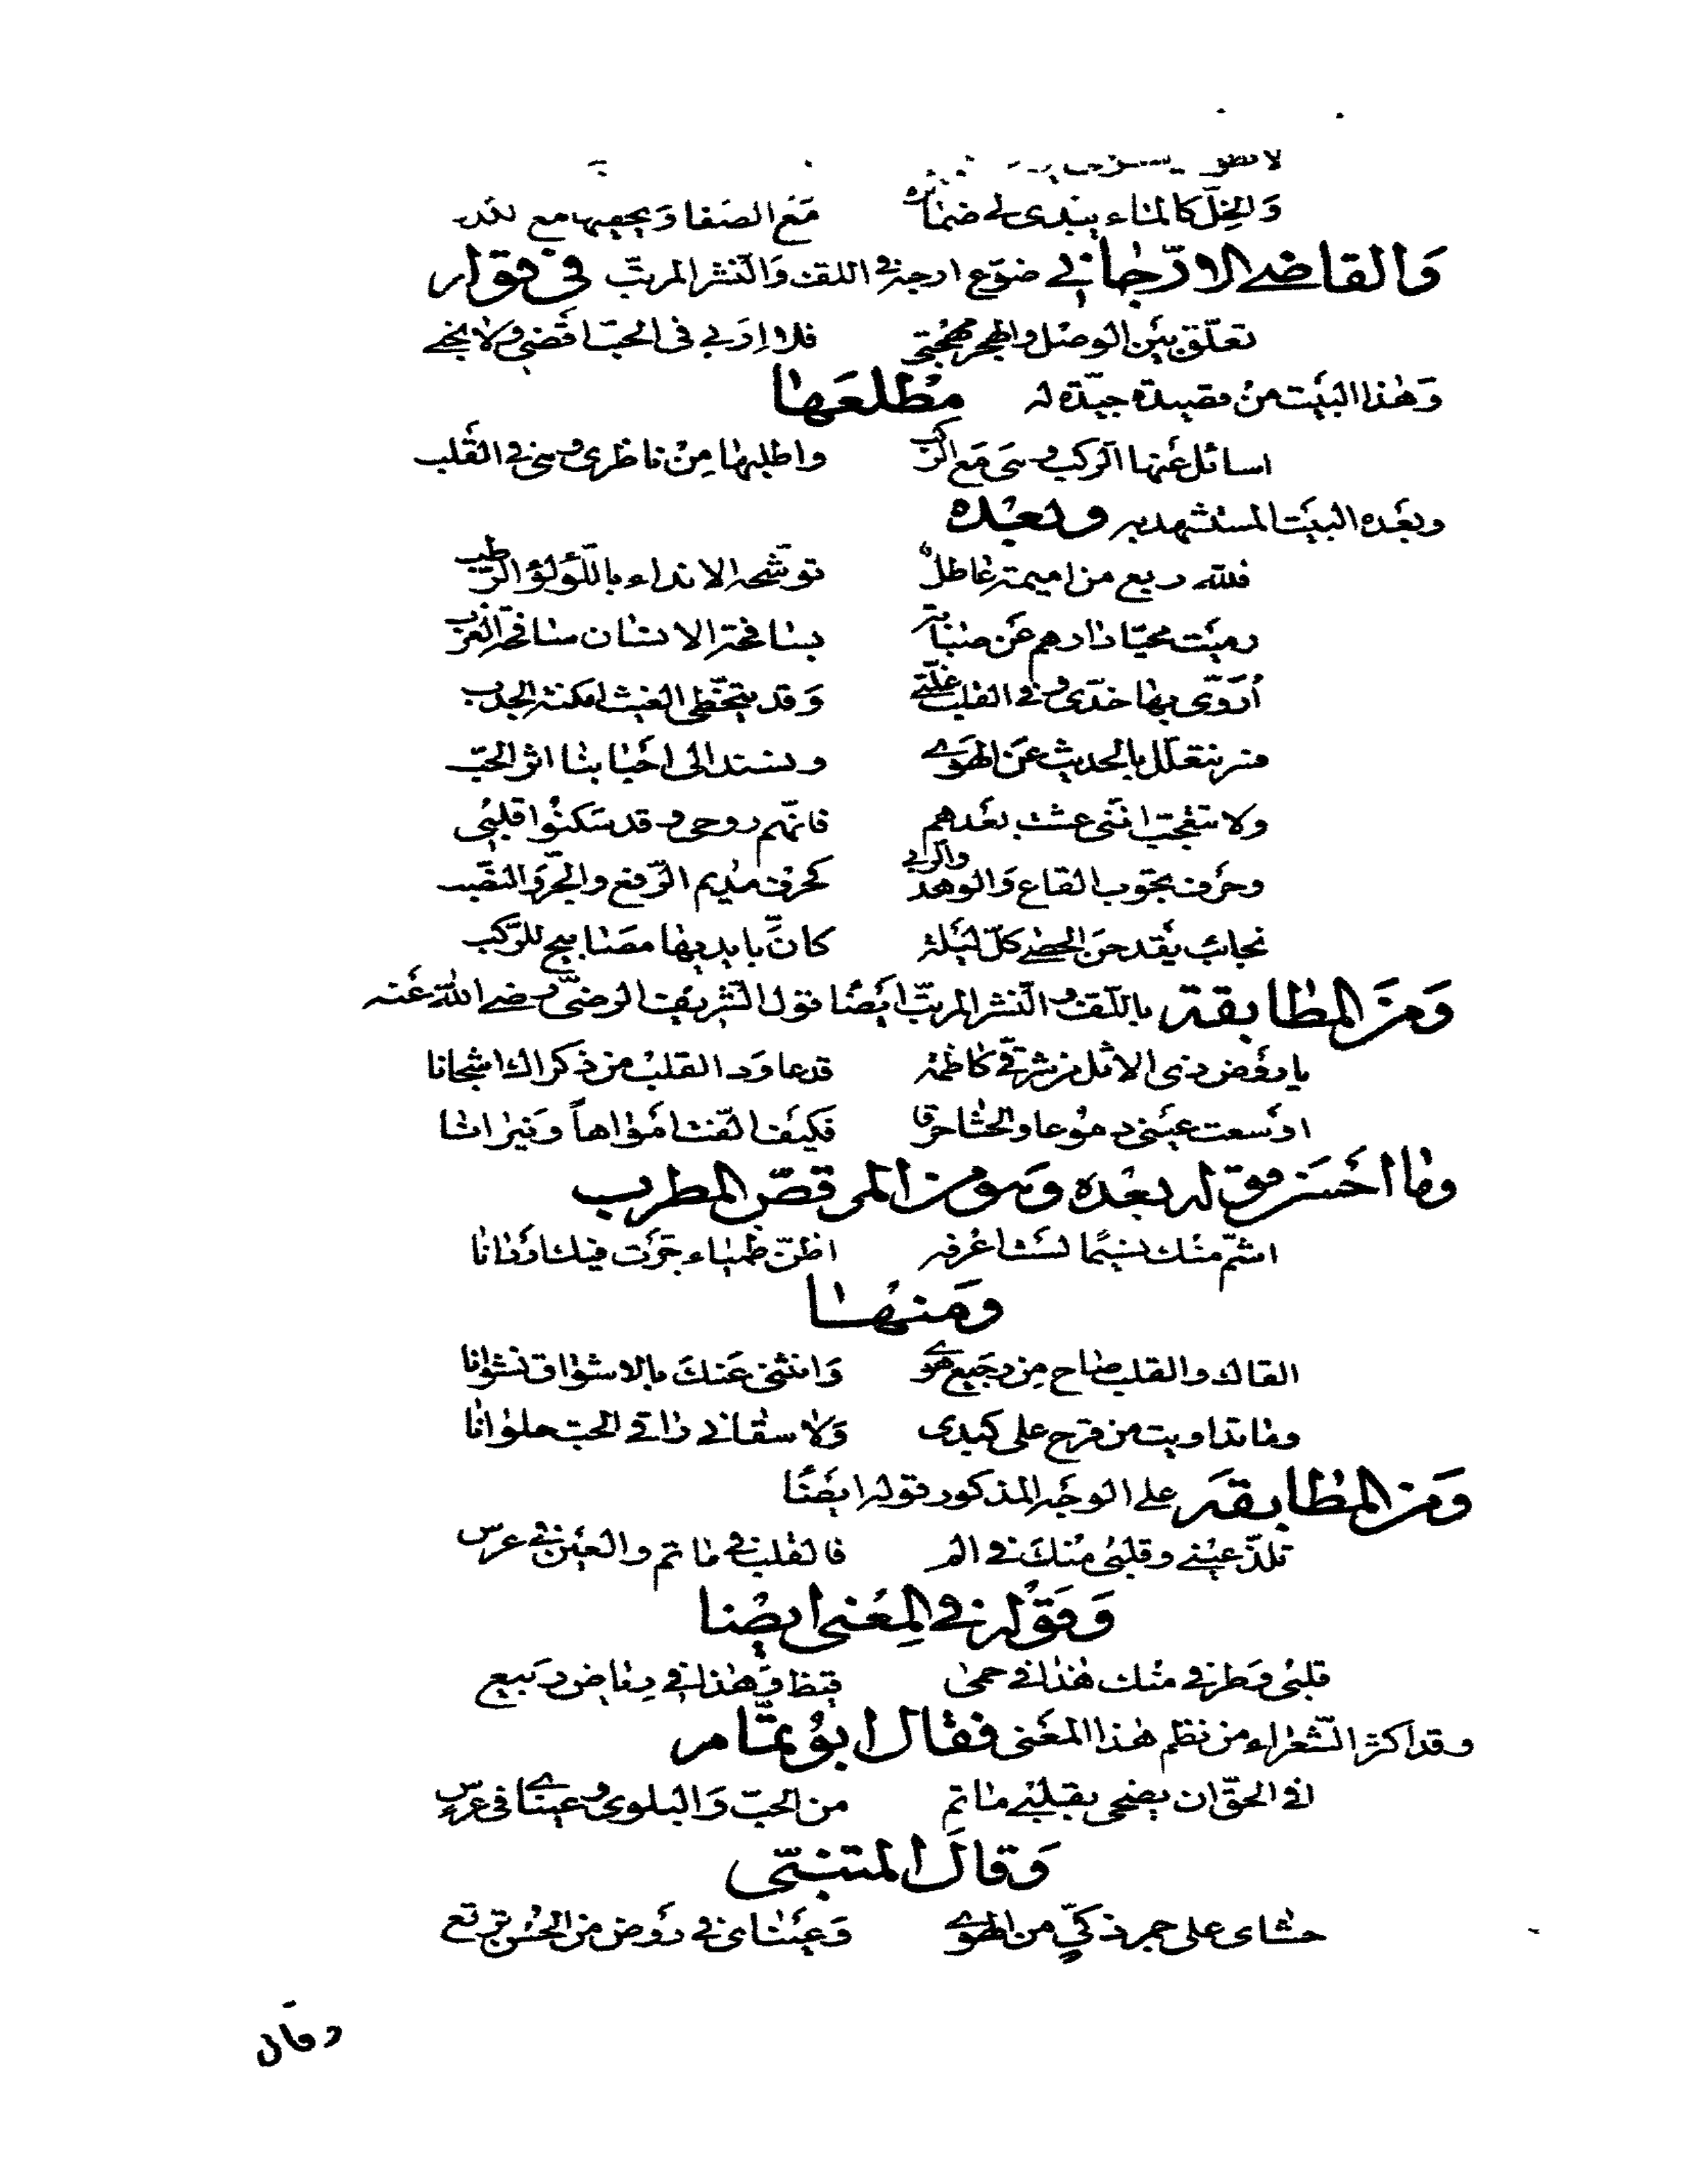 وَالخِلّ كالماء يبدى لى ضمائره مَعَ الصَفا وَيخفيها مع
وَالقاضى الارّجانى ضوّع ارجه فى اللف وَالنّشر المرتّب فى قوله
تعلّق بين الوصل والهجر مهجتى فلا اِرَبى فى الحبّ اقضى ولا نحبى
وَهٰذا البيت من قصيدة جيّدة له مطلعَها
اسائل عنها الركب وهى مَع الركب واطلبها مِن ناظرى وهى فى القلب
وبعده البيت المستشهد به وبعده
فللّه ربع من اميمة عاطل توشّحه الانداء باللّؤلؤ الرّطب
رميت محيّا دارهم عَن صبابة بسافحة الانسان سافحة الغرب
اُرَوّى بها خدّى وفى القلب غلّتى وَقد يتخّطى الغيث امكنة الجدب
نتعلّل بالحديث عَن الهوى ونسند الى احبابنا اثر الحبّ
ولا تتعجّب انّنى عشت بعدهم فانّهم روحى وقد سَكنوا قلبى
وحرف بجوب القاع وَالوهد والربى كحرف مديم الرّفع والجرّ وَالنصّب
نجائب يقدحن الحصى كلّ ليلة كانّ بايديها مصَابيح للرّكب
وَمن المطابقة باللّف والنّشر المرتّب ايضًا قول الشّريف الرضىّ رضى اللّه عَنه
يا روض ذى الاثل من شرقّى كاظمة قد عاود القلب من ذكراك اشجانا
اوسعت عينى دموعا والحشا حرقا فكيف الّفت امواهاً وَنيرانا
وما احسَن قوله بعده وَهو من المرقصّ المطرب
اشمّ منك نسيمًا لست اعرفه اظنّ ظمياء جرّت فيك اردانا
وَمنها
القاك والقلب صاح مِن رجيع هوى وَانثنى عَنكَ بالاشواق نشوانا
وما تداويت من قرح على كبدى وَلا سقانى راقى الحبّ حلوانا
وَمن المطابقة على الوجه المذكور قوله ايضًا
تلذّ عينى وقلبى منك فى الم فالقلب فى ماتم والعين فى عرس
وَقوله فى المعنى ايضا
قلبى وَطرفى منك هٰذا فى حمى قيظ وَهٰذا فى رياض ربيع
وقد اكثر الشّعراء من نظم هٰذا المعنى فقال ابو تمّام
افى الحقّ ان يضحى بقلبى ماتم من الحبّ وَالبلوى وعيناى فى عرس
وَقالَ المتنبّى
حشاى على جمر ذكىّ من الهوى وَعيناى فى روض من الحسن ترتع
وقال